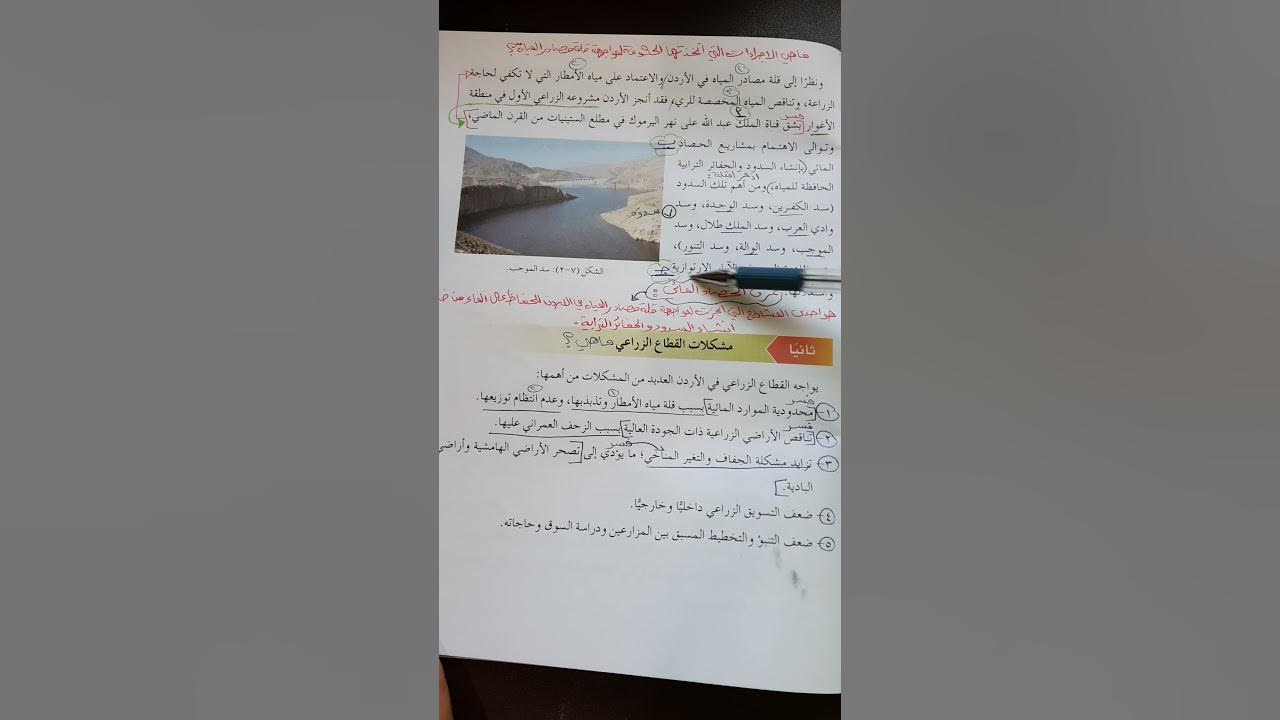 ماهي الاجراءات التي اتخذتها الحكومة لمواجهة قلة مصادر المياه؟
ونظرًا إلى قلة مصادر المياه في الأردن والاعتماد على مياه الأمطار التي لا تكفي لحاجة
الزراعة، وتناقص المياه المخصصة للري، فقد أنجز الأردن مشروعه الزراعي الأول في منطقة
فسر
الأغوار بشق قناة الملك عبد الله على نهر اليرموك في مطلع الستينيات من القرن الماضي،
وتوالى الاهتمام بمشاريع الحصاد
المائي (بإنشاء السدود والحفائر الترابية
اذكر امثلة:
الحافظة للمياه)، ومن أهم تلك السدود
(سد الكفرين، وسد الوحدة، وسد
٧ سدود
وادي العرب، وسد الملك طلال، وسد
الموجب، وسد الوالة، وسد التنور)،
الآبار الارتوازية
الشكل (٧-٢): سد الموجب.
واستغلالها.
عرف الحصاد المائي:
هو احدى المشاريع التي انجزت لمواجهة قلة مصادر المياه في الاردن للحفاظ على الماء من
انشاء السدود والحفائر الترابية.
ثانيًا
مشكلات القطاع الزراعي ماهي؟
يواجه القطاع الزراعي في الأردن العديد من المشكلات من أهمها:
فسر
١- محدودية الموارد المائية بسبب قلة مياه الأمطار وتذبذبها، وعدم انتظام توزيعها.
فسر
٢- تناقص الأراضي الزراعية ذات الجودة العالية بسبب الزحف العمراني عليها.
فسر
٣- تزايد مشكلة الجفاف والتغير المناخي؛ ما يؤدي إلى تصحر الأراضي الهامشية وأراضي
البادية.
٤- ضعف التسويق الزراعي داخليًّا وخارجيًّا.
٥- ضعف التنبؤ والتخطيط المسبق بين المزارعين ودراسة السوق وحاجاته.